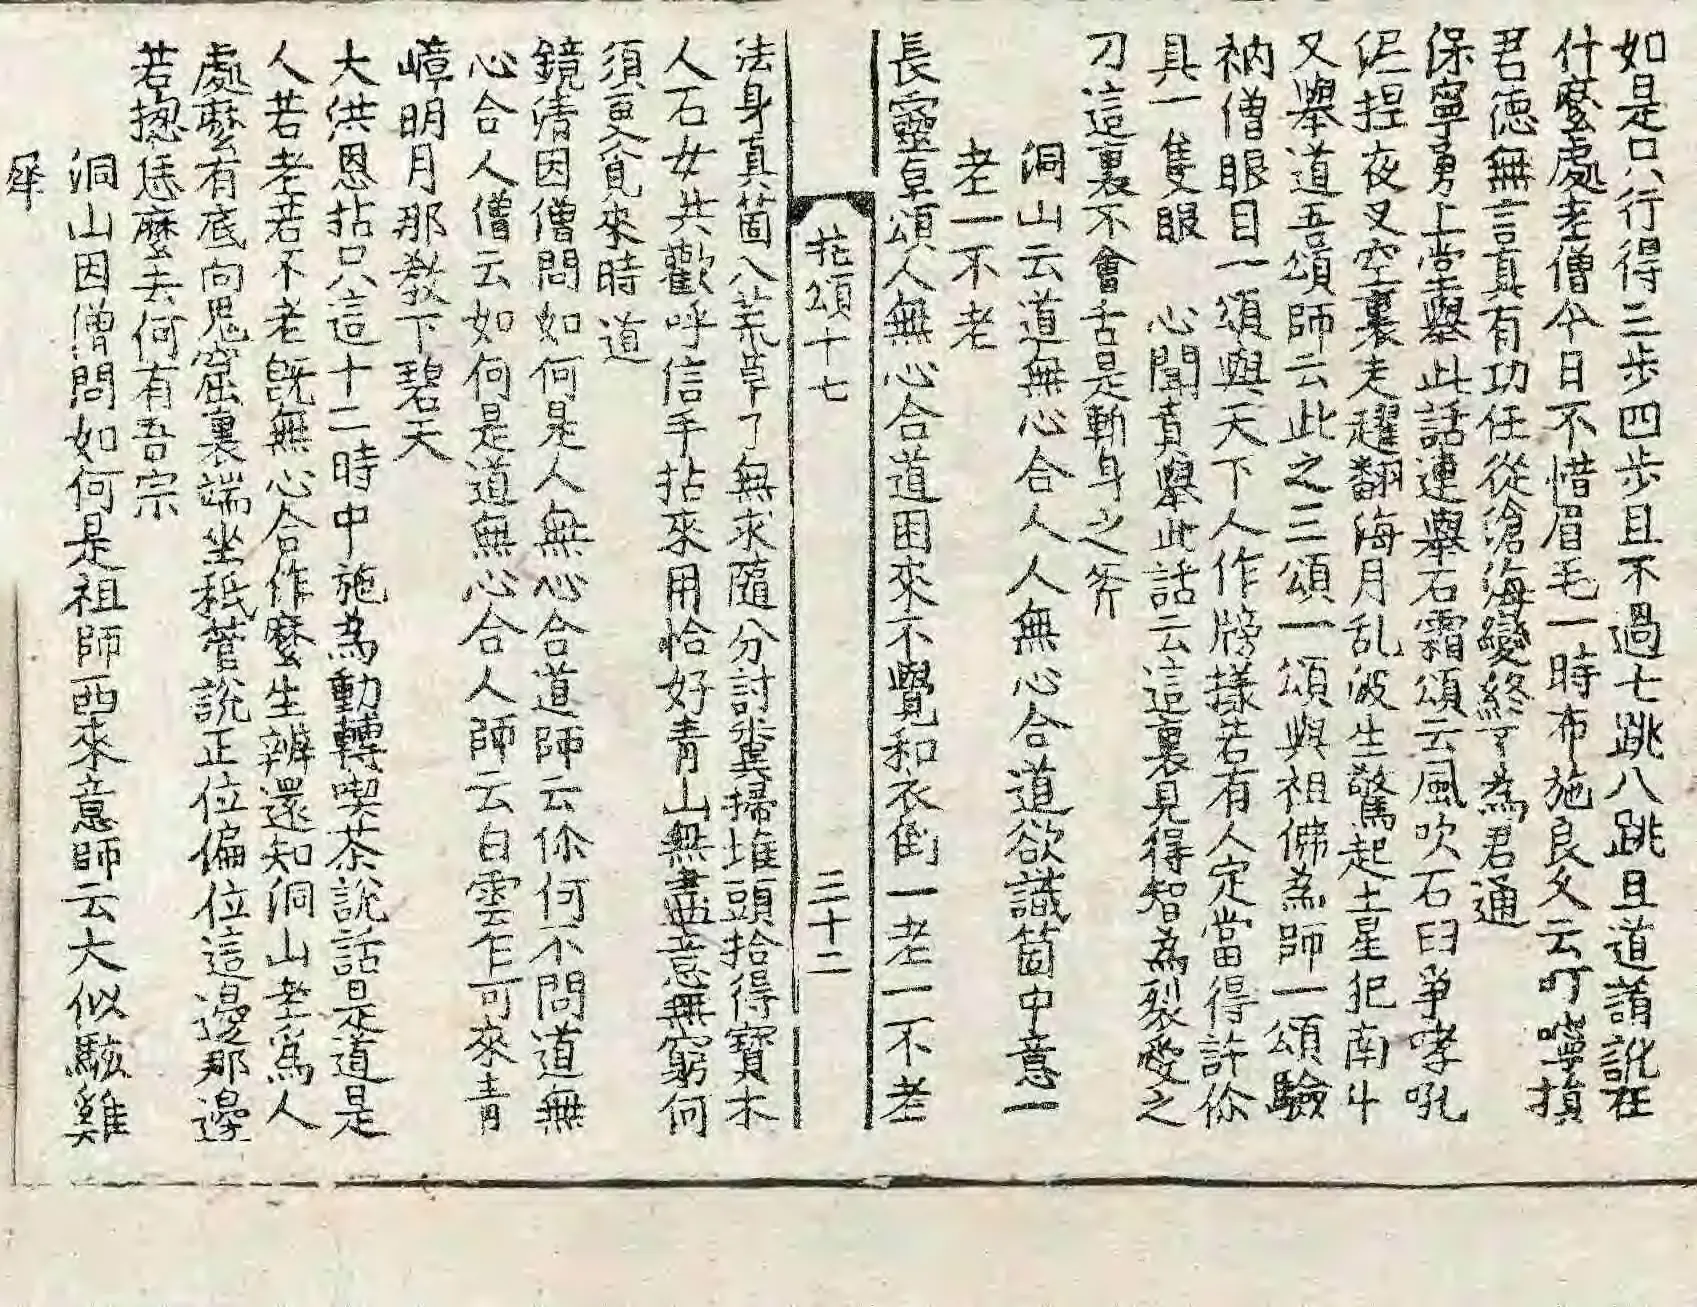 如是只行得三步四步且不過七跳八跳且道誵訛在
什麼處老僧今日不惜眉毛一時布施良久云叮嚀損
君德無言眞有功任從滄海變終不為君通
保寧勇上堂舉此話連舉石霜頌云風吹石臼爭哮吼
泥捏夜叉空裏走趯翻海月乱波生驚起土星犯南斗
又舉道吾頌師云此之三頌一頌與祖佛為師一頌驗
衲僧眼目一頌與天下人作牓㨾若有人定當得許你
具一隻眼　心聞賁舉此話云這裏見得智為裂愛之
刀這裏不會舌是斬身之斧
洞山云道無心合人人無心合道欲識箇中意一
老一不老
長靈卓頌人無心合道困來不覺和衣倒一老一不老
拈頌十七　三十二
法身真箇八荒草了無求隨分討糞掃堆頭拾得寶木
人石女共歡呼信手拈來用恰好青山無盡意無窮何
須更覓來時道
鏡清因僧問如何是人無心合道師云你何不問道無
心合人僧云如何是道無心合人師云白雲乍可來青
嶂明月那教下碧天
大洪恩拈只這十二時中施為動轉喫茶說話是道是
人若老若不老旣無心合作麼生辨還知洞山老爲人
處麼有底向鬼窟裏端坐秖管說正位偏位這邊那邊
若揔恁麼去何有吾宗
洞山因僧問如何是祖師西來意師云大似駭雞
犀